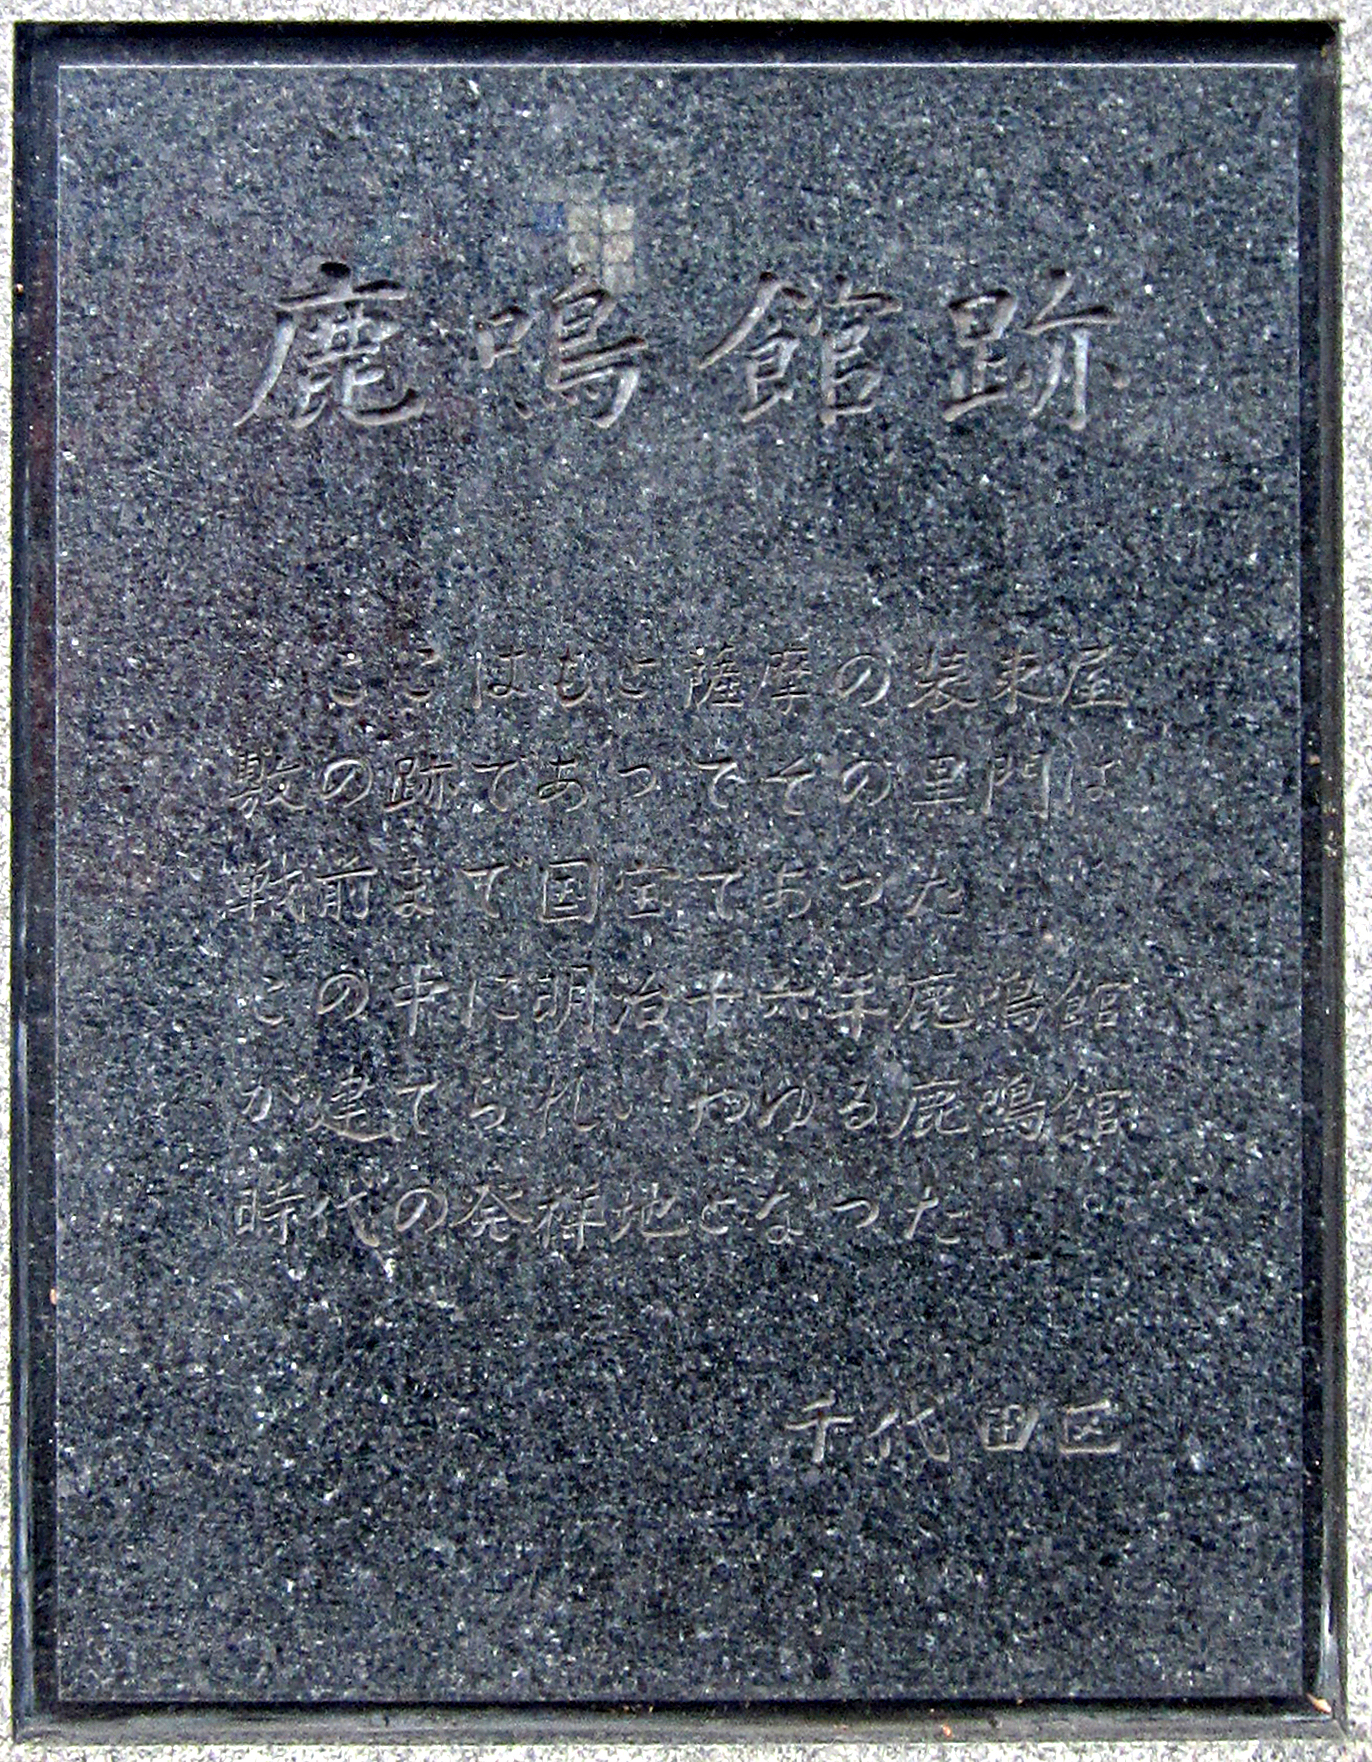 鹿鳴館跡
ここはもと薩摩の装束屋
敷の跡であつてその黒門は
戦前まで国宝であつた
この中に明治十六年鹿鳴館
が建てられいわゆる鹿鳴館
時代の発祥地となつた。
千代田区